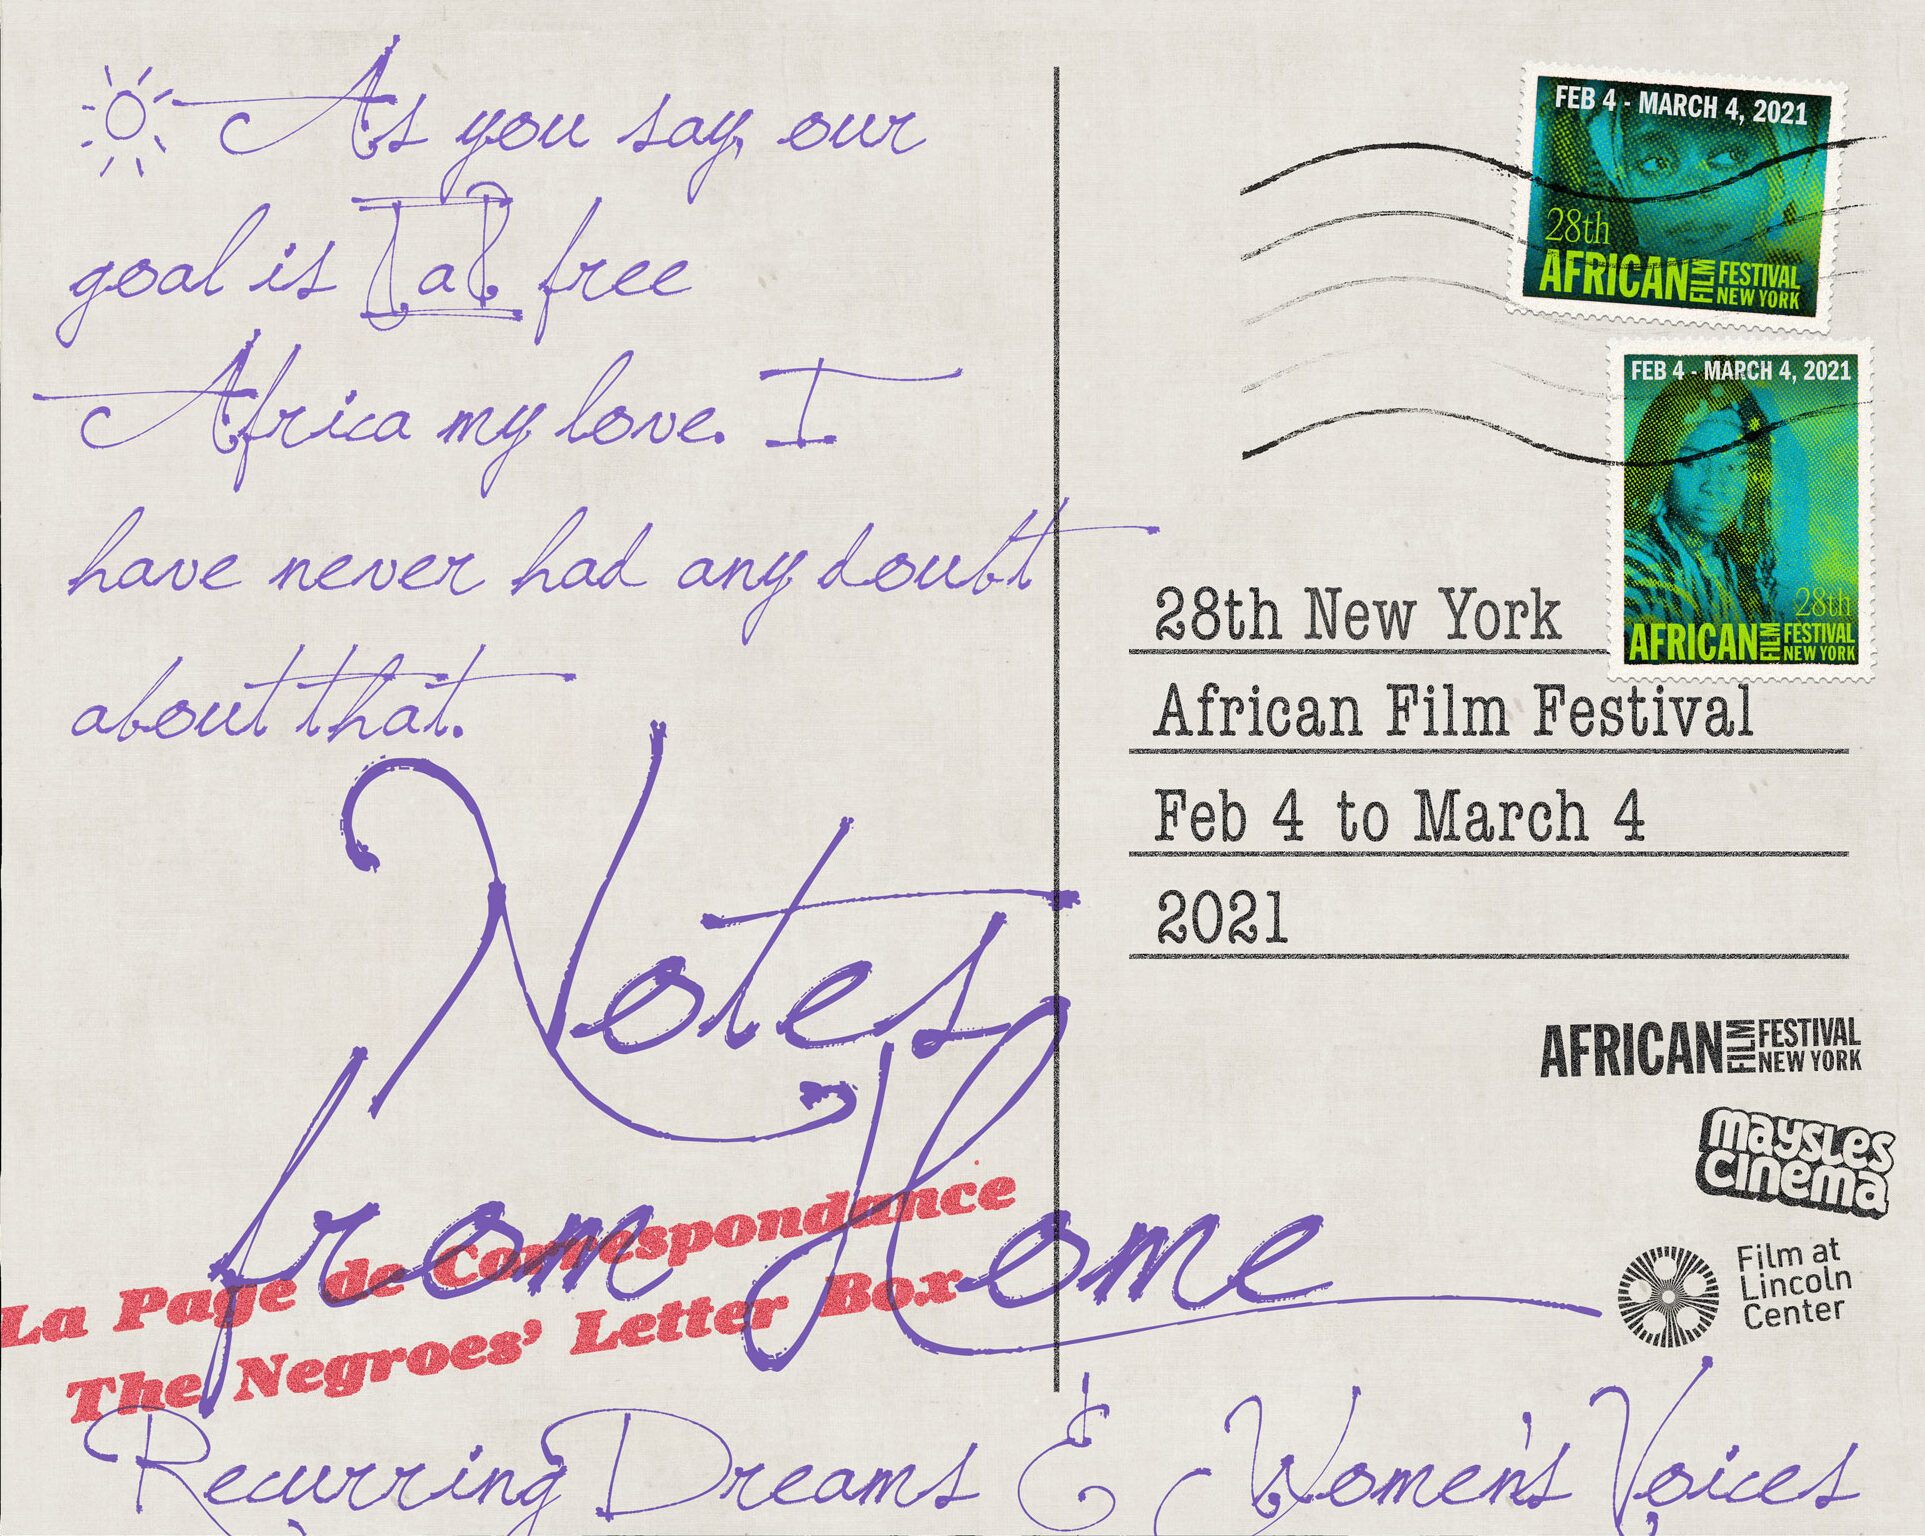 As you say, our
goal is [a] free
Africa my love. I
have never had any doubt
about that.
Notes
from Home
La Page de Correspondance
The Negroes' Letter Box
Recurring Dreams & Women's Voices
FEB 4 - MARCH 4, 2021
28th
AFRICAN FILM FESTIVAL NEW YORK
FEB 4 - MARCH 4, 2021
28th
AFRICAN FILM FESTIVAL NEW YORK
28th New York
African Film Festival
Feb 4 to March 4
2021
AFRICAN FILM FESTIVAL NEW YORK
maysles
cinema
Film at
Lincoln
Center